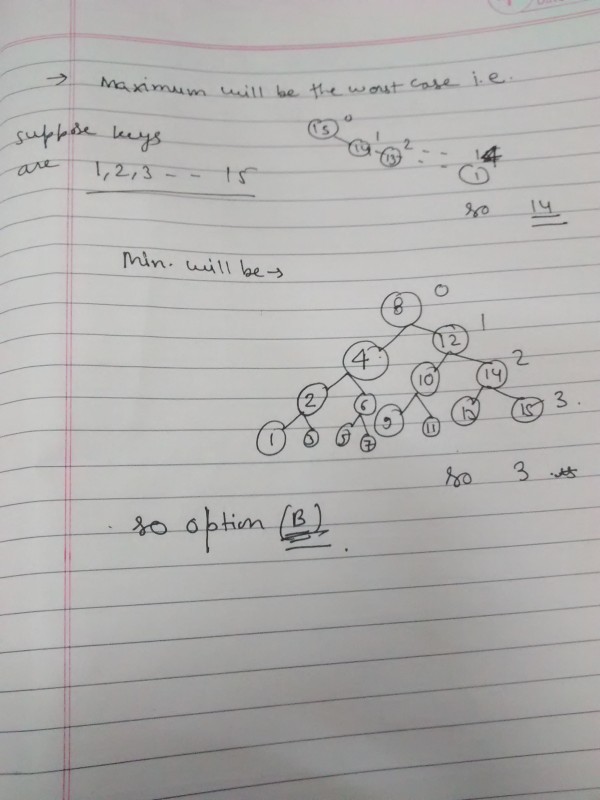 → Maximum will be the worst case i.e.
suppose keys
are 1, 2, 3 - - 15
15 0
14 1 13 2 - - - - 14
1
so 14
Min. will be →
8 0
4 12 1
2 6 10 14 2
1 3 5 7 9 11 13 15 3.
so 3
so option (B).